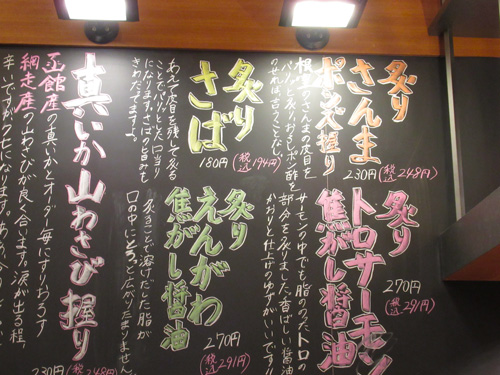 炙り
さんま
ポン又握り
根室のさんまの皮目を
パリッと炙り、おろしポン酢を
のせれば、言うことなし
230円(税込248円)
炙り
トロサーモン
焦がし醤油
270円
(税込291円)
サーモンの中でも脂ののったトロの
部分を炙りました。香ばしい醤油
かおりと仕上げのゆずがいい!!
炙り
さば
180円(税込194円)
あえて皮目を残して炙る
ことでパリッとした口当り
になります。さばの旨みも
きわだてますよ。
炙り
えんがわ
焦がし醤油
270円
(税込291円)
炙ることで溶けだした脂が
口の中にとろっと広がりたまりません
真いか山わさび握り
230円(税込248円)
函館産の真いかとオーダー毎にすりおろす
網走産の山わさびが良く合います。涙が出る程
辛いですがクセになります。